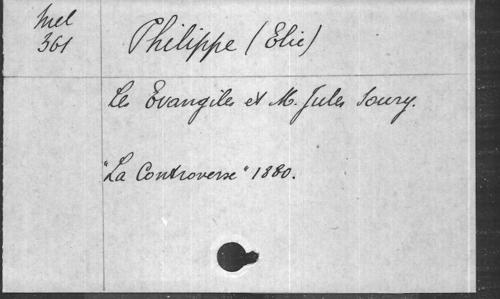 Mel
361
Philippe (Elie)
Les Evangiles et M. Jules Soury.
"La Controverse" 1880.